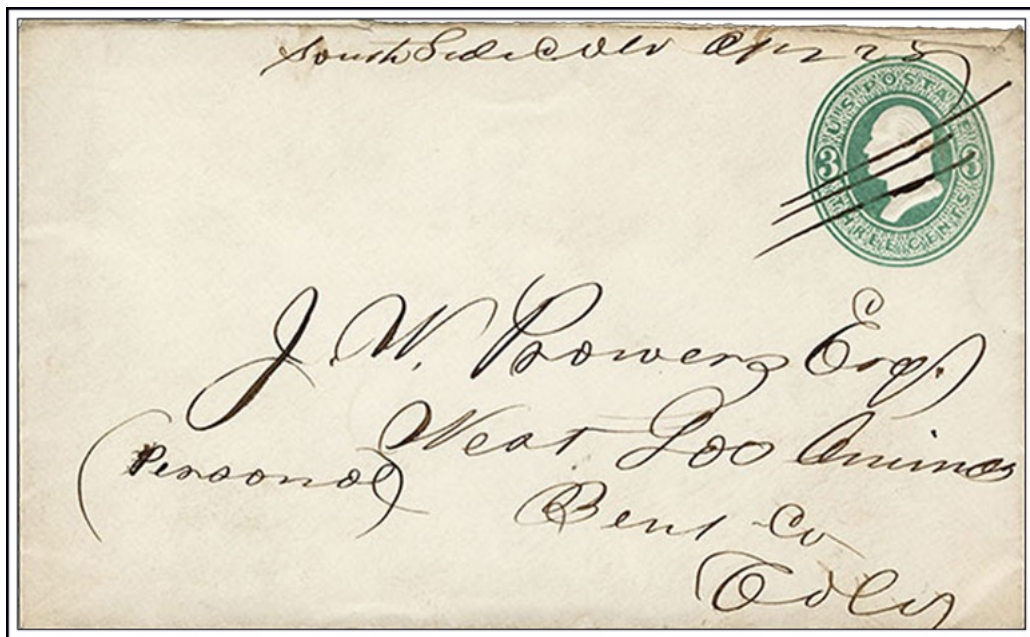 South Side Colo Apr 25
U.S. POSTAGE
3 3
THREE CENTS
J. W. Prowers Esq.
West Las Animas
(Personal)
Bent Co
Colo